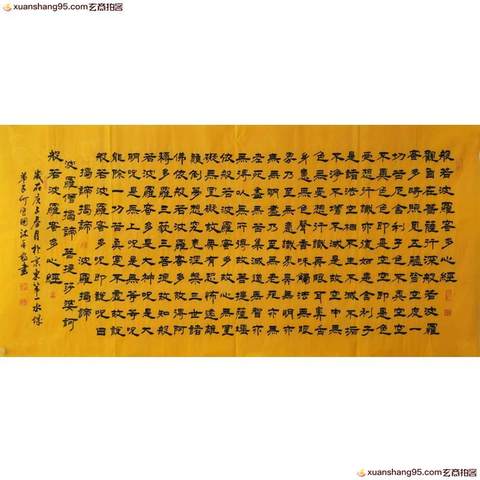 xuanshang95.com玄商拍客
xuanshang95.com玄商拍客
般若波羅蜜多心經
觀自在菩薩行深般若波羅
蜜多時照見五蘊皆空度一
切苦厄舍利子色不異空空
不異色色即是空空即是色
受想行識亦復如是舍利子
是諸法空相不生不滅不垢
不淨不增不減是故空中無
色無受想行識無眼耳鼻舌
身意無色聲香味觸法無眼
界乃至無意識界無無明亦
無無明盡乃至無老死亦無
老死盡無苦集滅道無智亦
無得以無所得故菩提薩埵
依般若波羅蜜多故心無罣
礙無罣礙故無有恐怖遠離
顛倒夢想究竟涅槃三世諸
佛依般若波羅蜜多故得阿
耨多羅三藐三菩提故知般
若波羅蜜多是大神咒是大
明咒是無上咒是無等等咒
能除一切苦真實不虛故說
般若波羅蜜多咒即說咒曰
揭諦揭諦 波羅揭諦
波羅僧揭諦菩提莎婆訶
般若波羅蜜多心經
歲在庚子春月於京東第一水城
xuanshang95.com玄商拍客